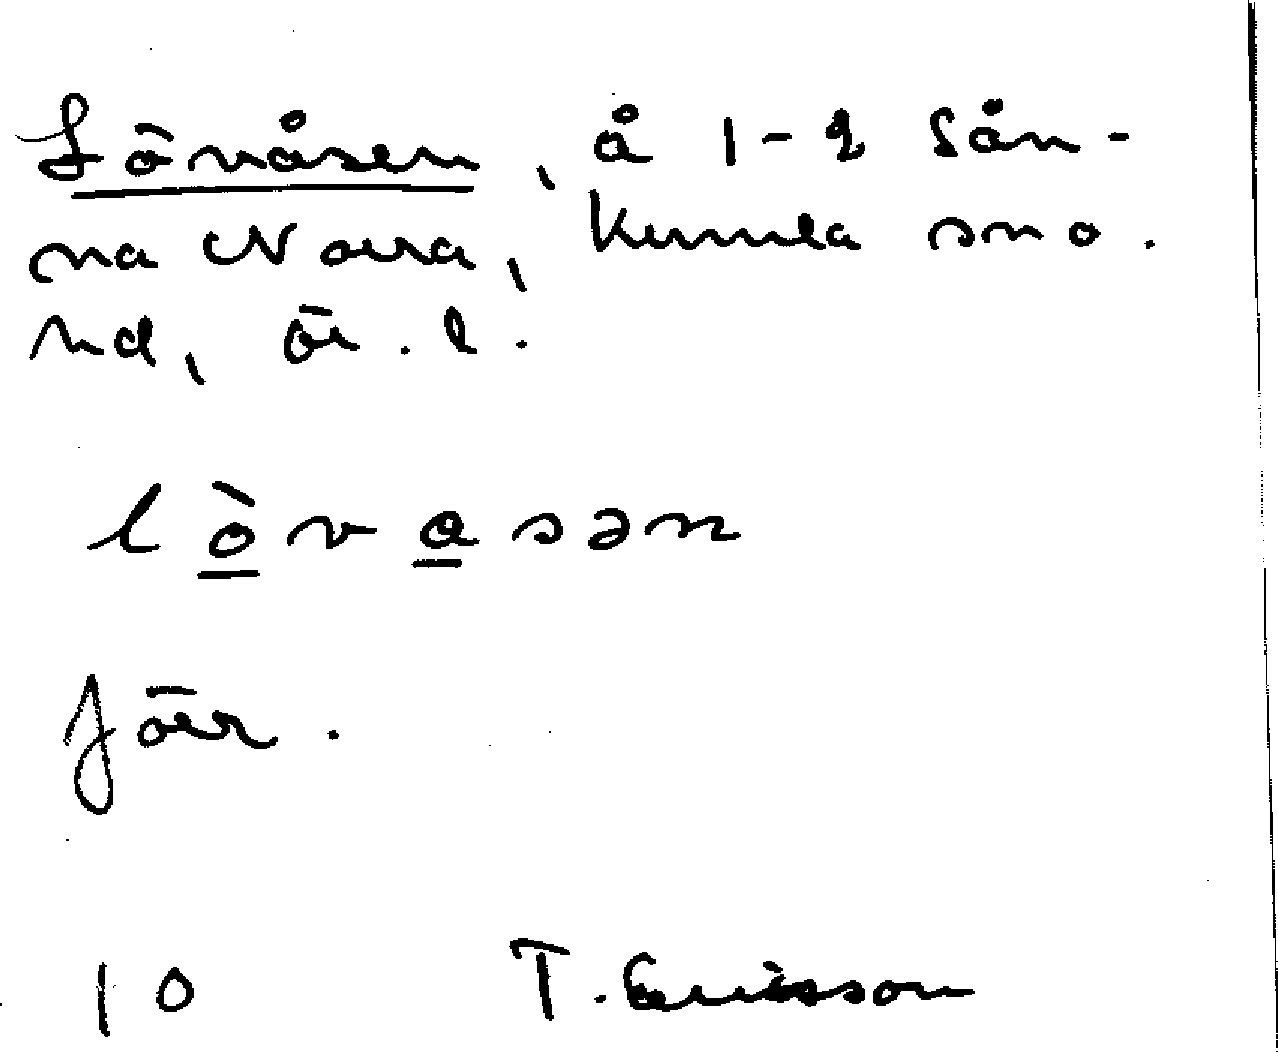 Lövåsen, å 1-2 Sån-
na Norra, Kumla sn o.
hd, ör. l.
lòvasən
Jör.
10 T. Ericsson